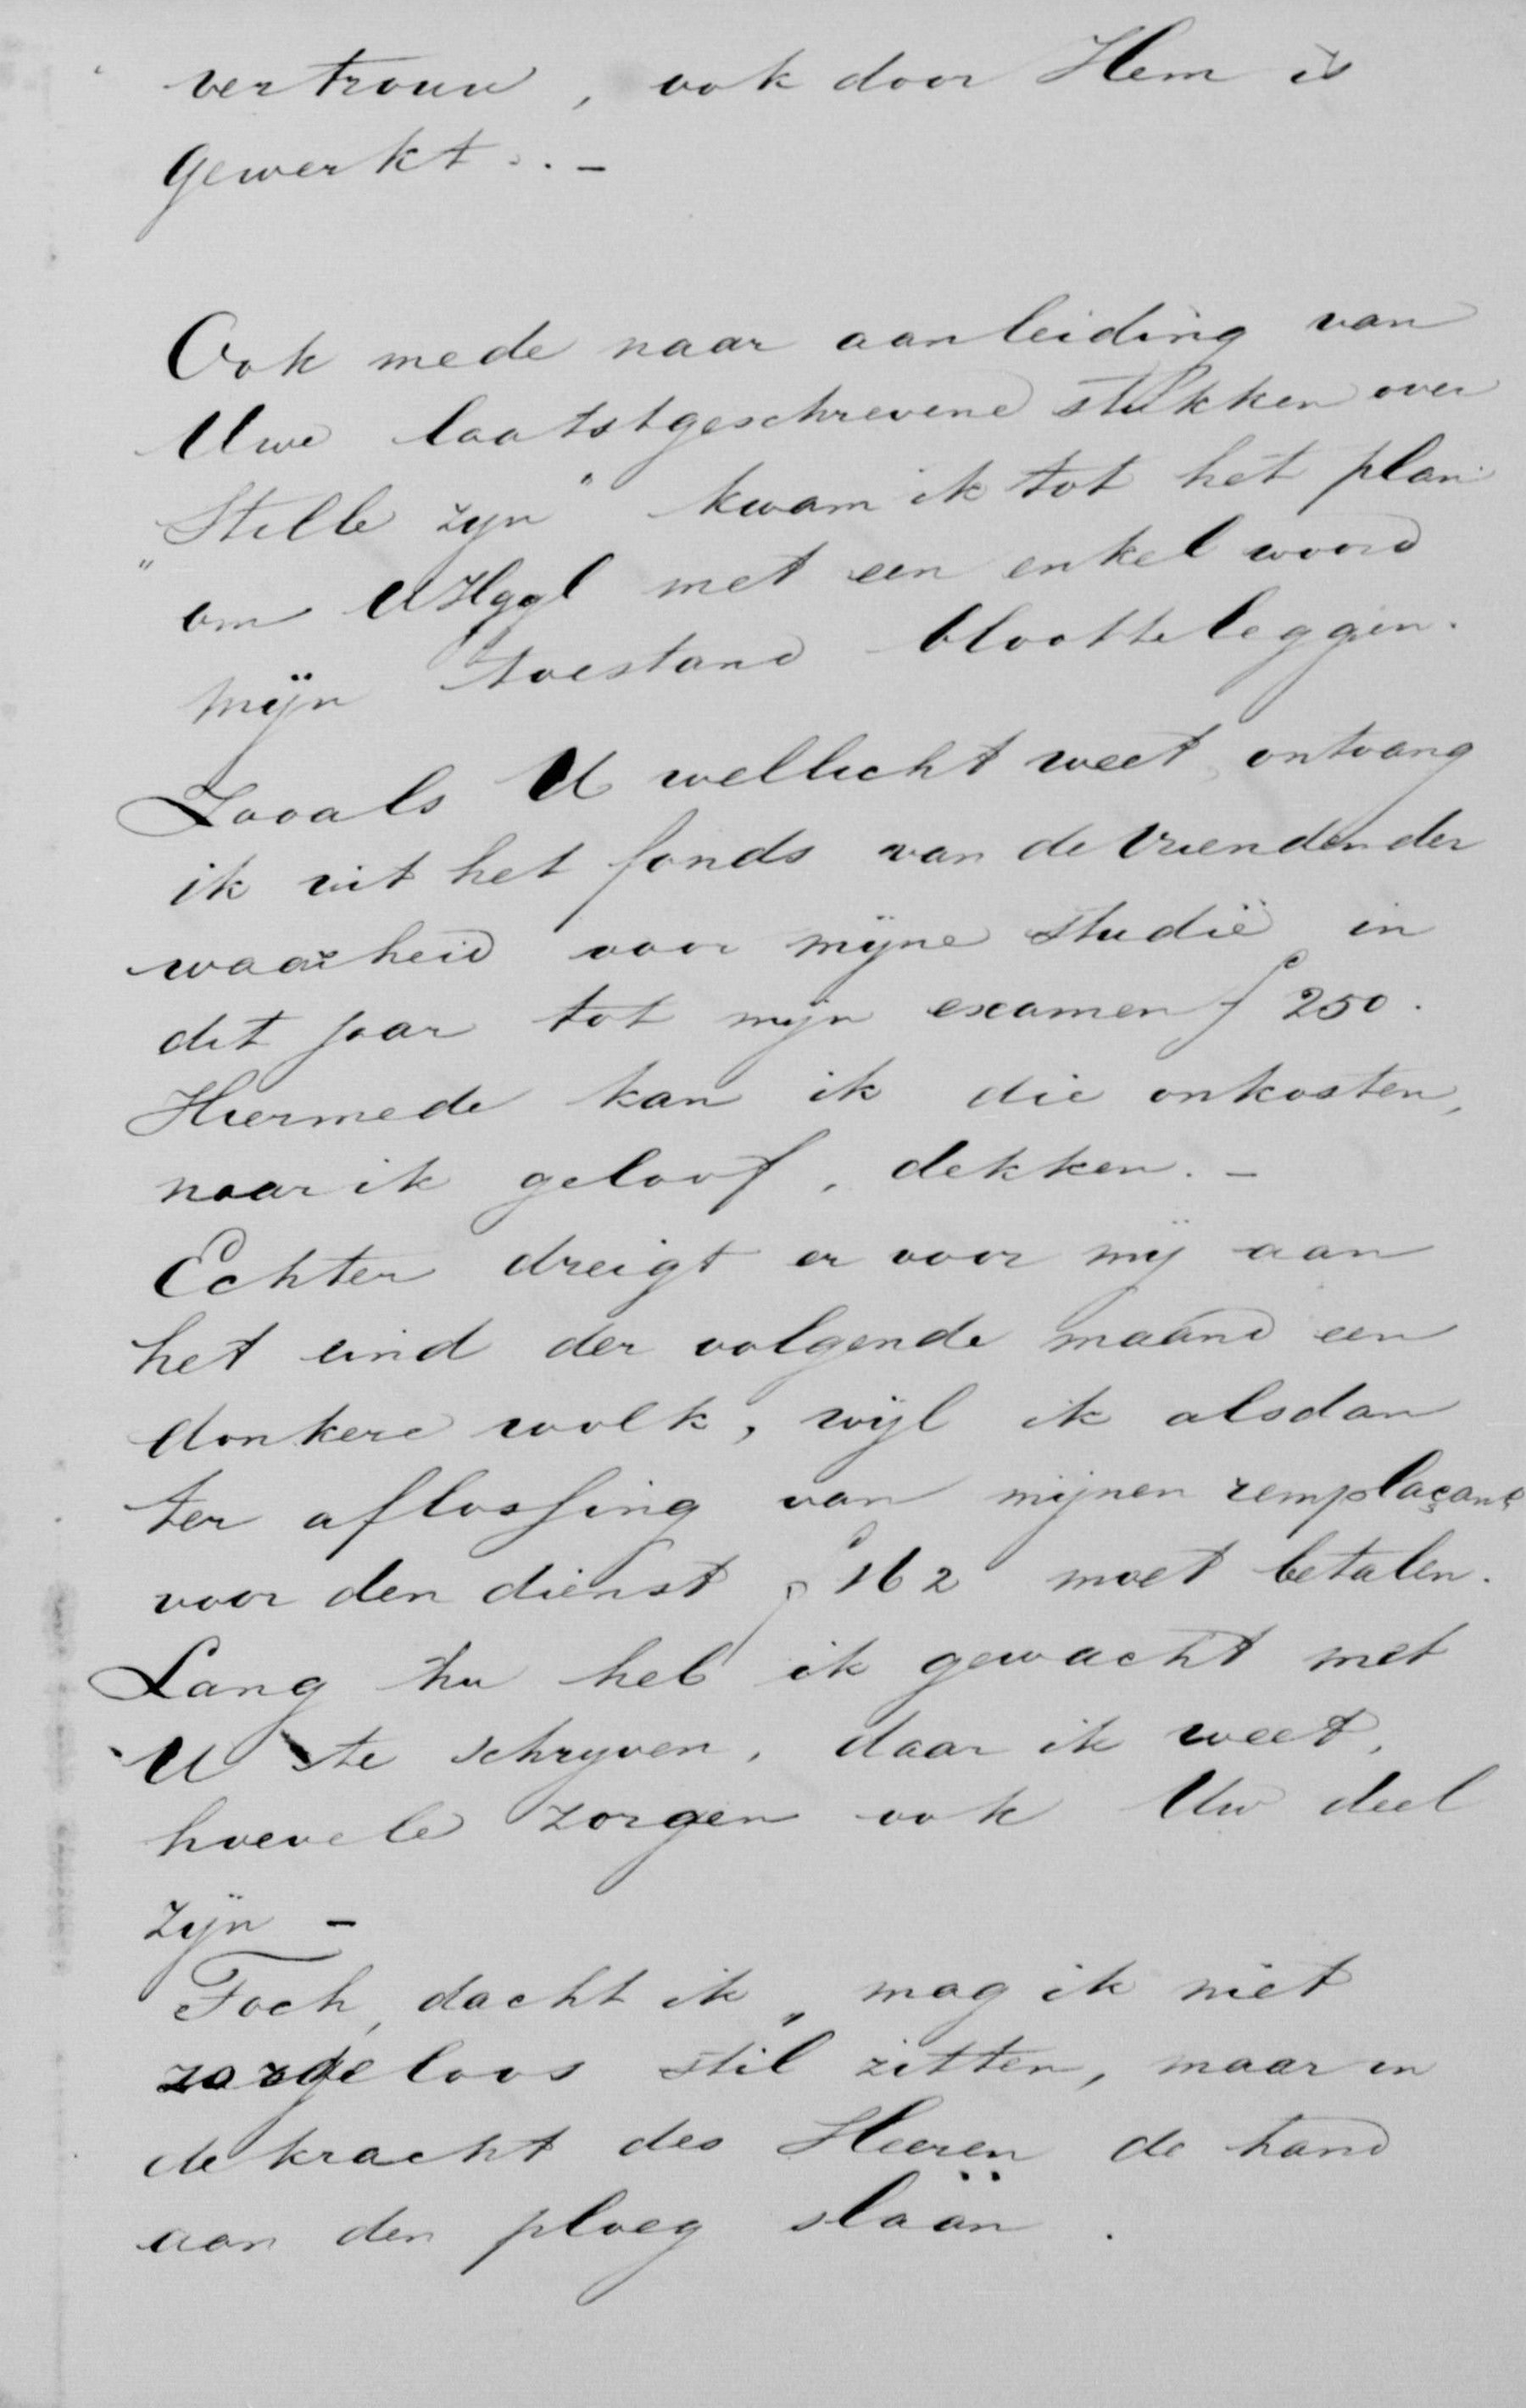 vertrouw, ook door Hem is
gewerkt. . –
Ook mede naar aanleiding van
Uwe laatstgeschrevene stukken over
„Stille zyn" kwam ik tot het plan
om UHggl met een enkel woord
mijn toestand blootteleggen.
Zooals U wellicht weet, ontvang
ik uit het fonds van de Vrienden der
waarheid voor mijne studië in
dit jaar tot mijn examen f 250.
Hiermede kan ik die onkosten,
naar ik geloof, dekken. –
Echter dreigt er voor mij aan
het eind der volgende maand een
donkere wolk, wijl ik alsdan
ter aflossing van mijnen remplaçant
voor den dienst f 162 moet betalen.
Lang nu heb ik gewacht met
U te schryven, daar ik weet,
hoevele zorgen ook Uw deel
zijn –
Toch, dacht ik, mag ik niet
zorgeloos stil zitten, maar in
de kracht des Heeren de hand
aan den ploeg slaän.